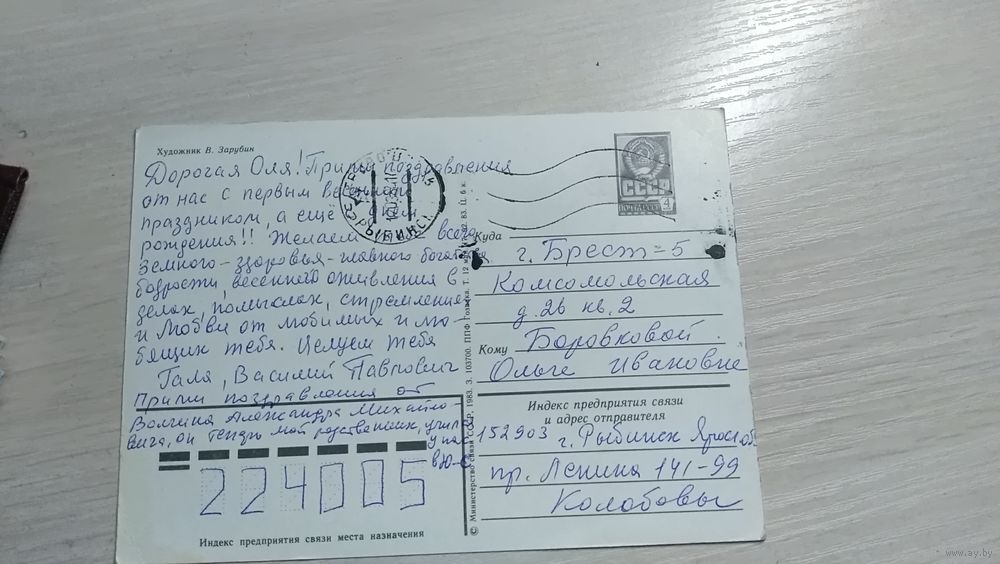 Художник В. Зарубин
Дорогая Оля! Прими поздравления
от нас с первым весенним
праздником, а ещё с днём
рождения!! Желаем тебе всего
земного - здоровья - главного богатства
бодрости, весеннего оживления в
делах, помыслах, стремлениях
и любви от любимых и лю-
бящих тебя. Целуем тебя
Галя, Василий Павлович
Прими поздравления от
Волгина Александра Михайло-
вича, он теперь мой родственник,
у нас
в Ю-С
224005
Индекс предприятия связи места назначения
© Министерство связи СССР, 1983. З. 103700. ППФ Гознака. Т. 12
РЫБИНСК
СССР
ПОЧТА СССР
4
Куда
г. Брест-5
Комсомольская
д. 26 кв. 2
Кому
Боровковой
Ольге Ивановне
Индекс предприятия связи
и адрес отправителя
152903 г. Рыбинск Яросл. об.
пр. Ленина 141-99
Колобовы
www.ay.by